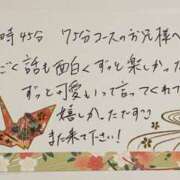 時45分 75分コースのお兄様へ
ごく話も面白くずっと楽しかった
ずっと可愛いって言ってくれて
嬉しかったです
また来て下さい!